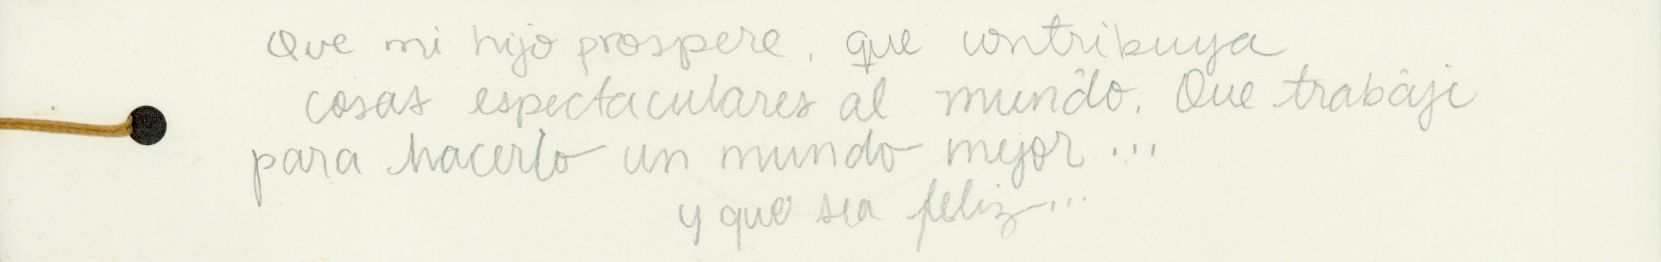 Que mi hijo prospere, que contribuya
cosas espectaculares al mundo. Que trabaje
para hacerlo un mundo mejor...
y que sea feliz...